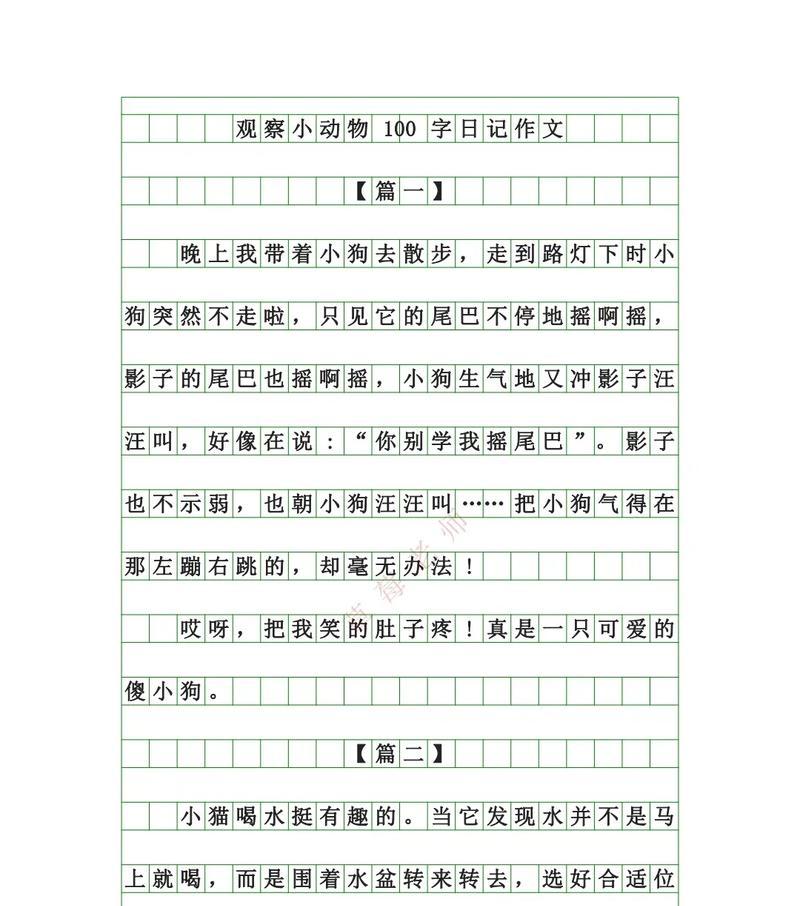 观察小动物 100 字日记作文
【篇一】
晚上我带着小狗去散步，走到路灯下时小
狗突然不走啦，只见它的尾巴不停地摇啊摇，
影子的尾巴也摇啊摇，小狗生气地又冲影子汪
汪叫，好像在说：“你别学我摇尾巴”。影子
也不示弱，也朝小狗汪汪叫……把小狗气得在
那左蹦右跳的，却毫无办法！
哎呀，把我笑的肚子疼！真是一只可爱的
傻小狗。
【篇二】
小猫喝水挺有趣的。当它发现水并不是马
上就喝，而是围着水盆转来转去，选好合适位